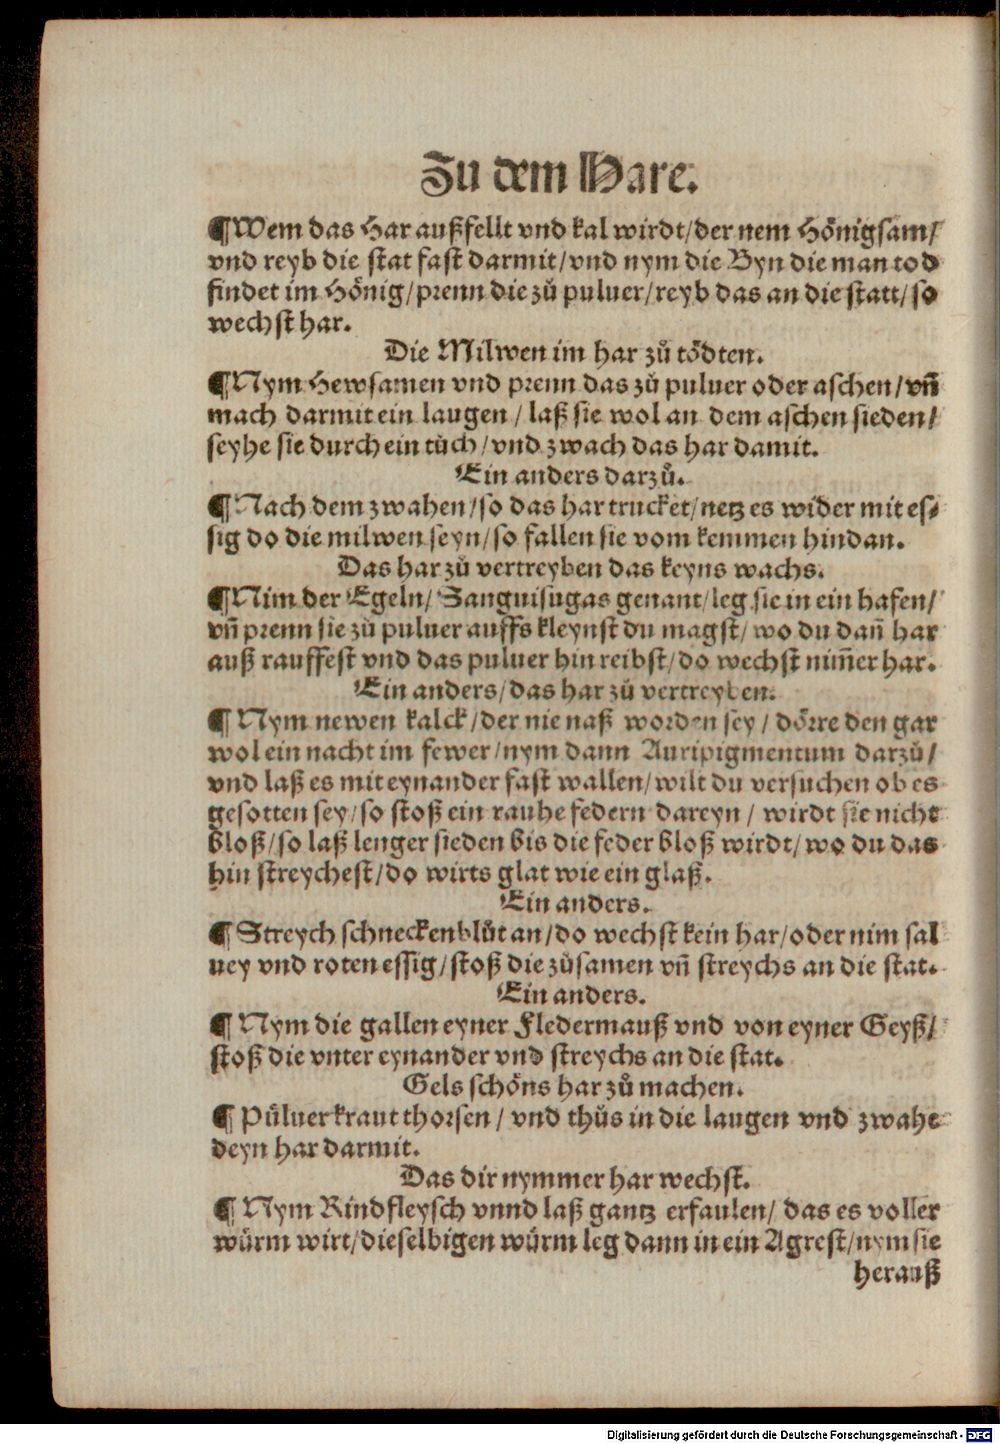 Zu dem Hare.
¶Wem das Har außfellt vnd kal wirdt/der nem Hönigsam/
vnd reyb die stat fast darmit/vnd nym die Byn die man tod
findet im Hönig/prenn die zů puluer/reyb das an die statt/so
wechst har.
Die Milwen im har zů tödten.
¶Nym Hewsamen vnd prenn das zů puluer oder aschen/vñ
mach darmit ein laugen/laß sie wol an dem aschen sieden/
seyhe sie durch ein tůch/vnd zwach das har damit.
Ein anders darzů.
¶Nach dem zwahen/so das har trucket/netz es wider mit es⸗
sig do die milwen seyn/so fallen sie vom kemmen hindan.
Das har zů vertreyben das keyns wachs.
¶Nim der Egeln/Sanguisugas genant/leg sie in ein hafen/
vñ prenn sie zů puluer auffs kleynst du magst/wo du dañ har
auß rauffest vnd das puluer hin reibst/do wechst nim̃er har.
Ein anders/das har zů vertreyben.
¶Nym newen kalck/der nie naß worden sey/dörre den gar
wol ein nacht im fewer/nym dann Auripigmentum darzů/
vnd laß es mit eynander fast wallen/wilt du versuchen ob es
gesotten sey/so stoß ein rauhe federn dareyn/wirdt sie nicht
bloß/so laß lenger sieden bis die feder bloß wirdt/wo du das
hin streychest/do wirts glat wie ein glaß.
Ein anders.
¶Streych schneckenblůt an/do wechst kein har/oder nim sal
uey vnd roten essig/stoß die zůsamen vñ streychs an die stat.
Ein anders.
¶Nym die gallen eyner Fledermauß vnd von eyner Geyß/
stoß die vnter eynander vnd streychs an die stat.
Gels schöns har zů machen.
¶Půluerkraut thorsen/vnd thůs in die laugen vnd zwahe
deyn har darmit.
Das dir nymmer har wechst.
¶Nym Rindfleysch vnnd laß gantz erfaulen/das es voller
würm wirt/dieselbigen würm leg dann in ein Agrest/nym sie
herauß
Digitalisierung gefördert durch die Deutsche Forschungsgemeinschaft - DFG